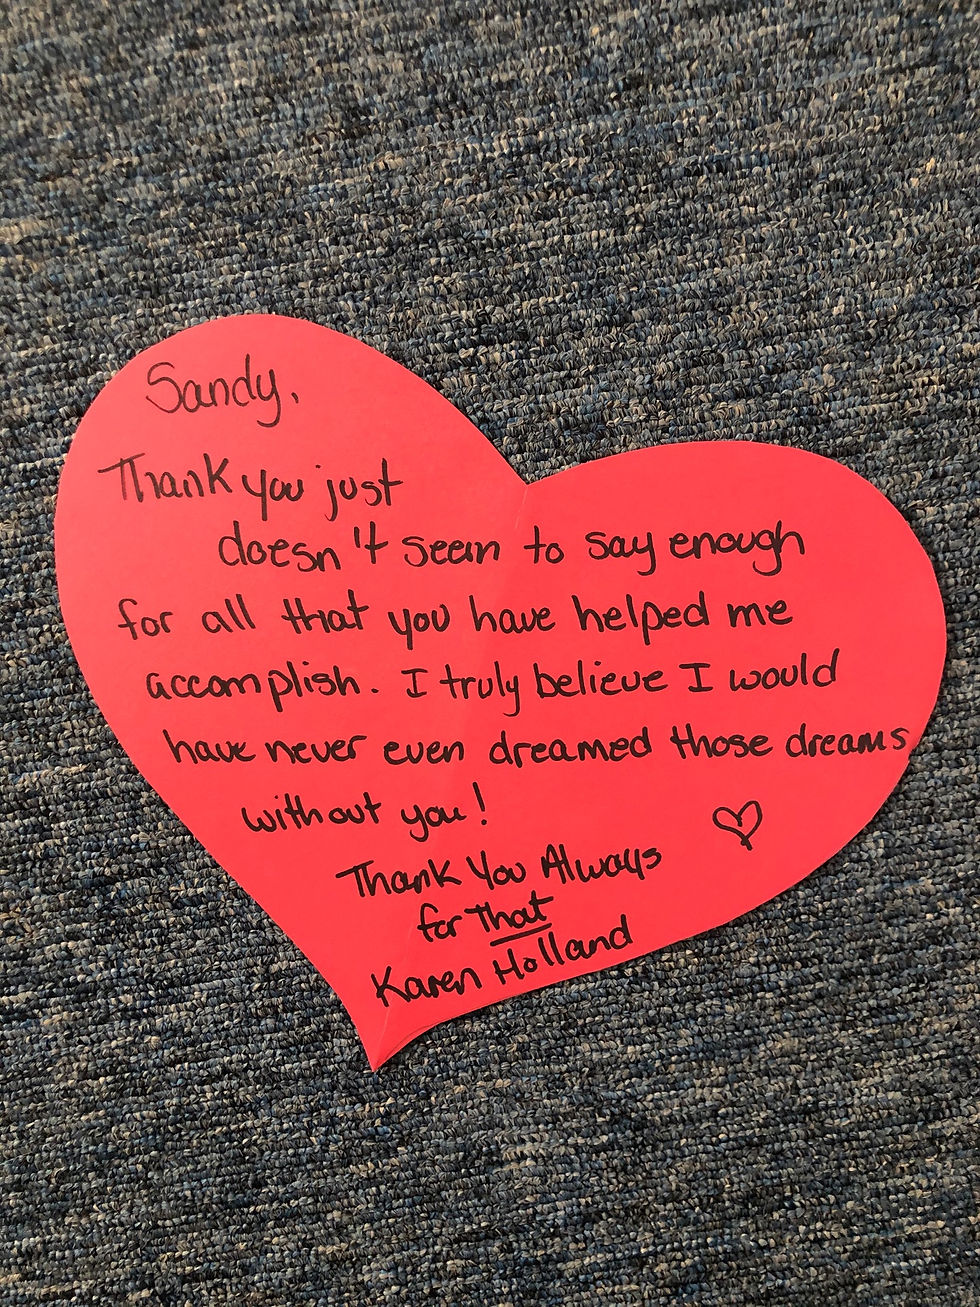 Sandy,
Thank you just
doesn't seem to say enough
for all that you have helped me
accomplish. I truly believe I would
have never even dreamed those dreams
without you!
Thank You Always
for That
Karen Holland